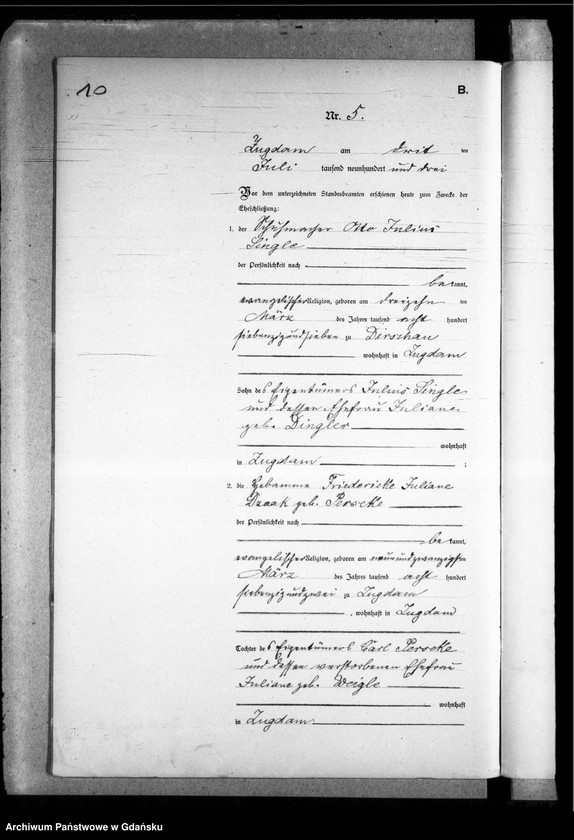 10
B.
Nr. 5.
Zugdam am drit ten
Juli tausend neunhundert und drei
Vor dem unterzeichneten Standesbeamten erschienen heute zum Zwecke der
Eheschließung:
1. der Schuhmacher Otto Julius
Single
der Persönlichkeit nach
be kannt,
evangelischer Religion, geboren am dreizehn ten
März des Jahres tausend acht hundert
siebenzigundsieben zu Dirschau
wohnhaft in Zugdam
Sohn des Eigentümers Julius Single
und dessen Ehefrau Juliane
geb. Dingler
wohnhaft
in Zugdam ;
2. die Hebamme Friedericke Juliane
Daaak geb. Perscke
der Persönlichkeit nach
be kannt,
evangelischer Religion, geboren am neunundzwanzigsten
März des Jahres tausend acht hundert
siebenzigundzwei zu Zugdam
, wohnhaft in Zugdam
Tochter des Eigentümers Carl Perscke
und dessen verstorbenen Ehefrau
Juliane geb. Weigle
wohnhaft
in Zugdam
Archiwum Państwowe w Gdańsku